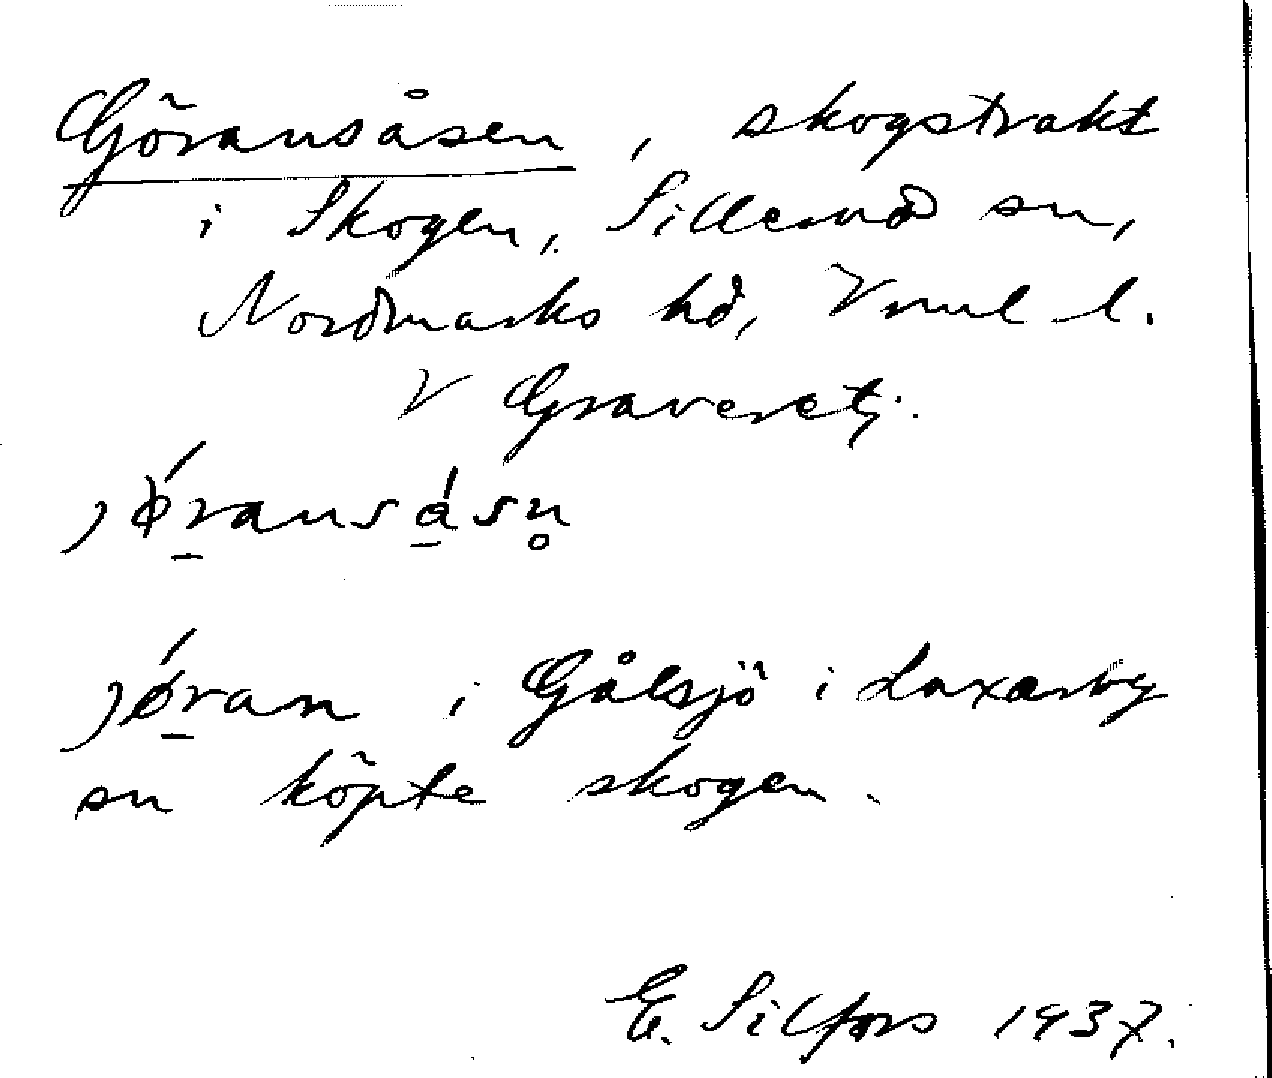 Göransåsen, skogstrakt
i Skogen, Sillerud sn,
Nordmarks hd, Vrml l.
V Graveretj.
jǿ̱ransá̱sn̥
jǿ̱ran i Gålsjö i Laxarby
sn köpte skogen.
E. Silfors 1937.